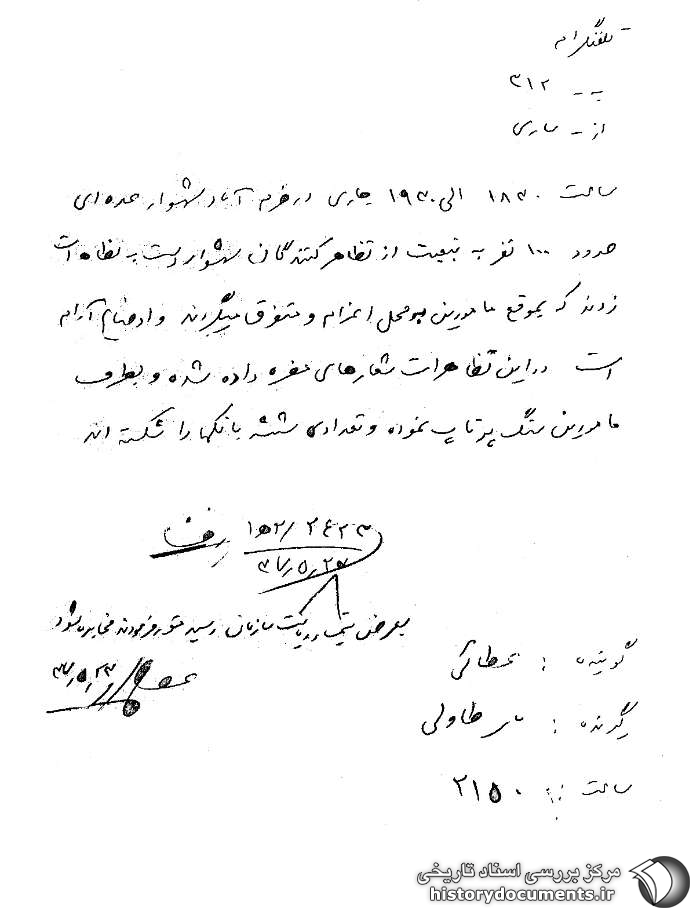 تلفنگرام
به - ۳۱۲
از - ساری
ساعت ۱۸۳۰ الی ۱۹۳۰ جاری در خرم آباد شهسوار عده ای
حدود ۱۰۰ نفر به تبعیت از تظاهر کنندگان شهسوار دست به تظاهرات
زدند که بموقع مامورین به محل اعزام و متفرق میگردند و اوضاع آرام
است در این تظاهرات شعارهای مضره داده شده و بطرف
مامورین سنگ پرتاب نموده و تعدادی شیشه بانکها را شکسته اند
۱۵۲/۲۶۲۳
بعرض تیمسار ریاست سازمان رسید مقرر فرمودند مخابره شود
گوینده : عطائی
گیرنده : طاولی
ساعت : ۲۱۵۰
مرکز بررسی اسناد تاریخی
historydocuments.ir